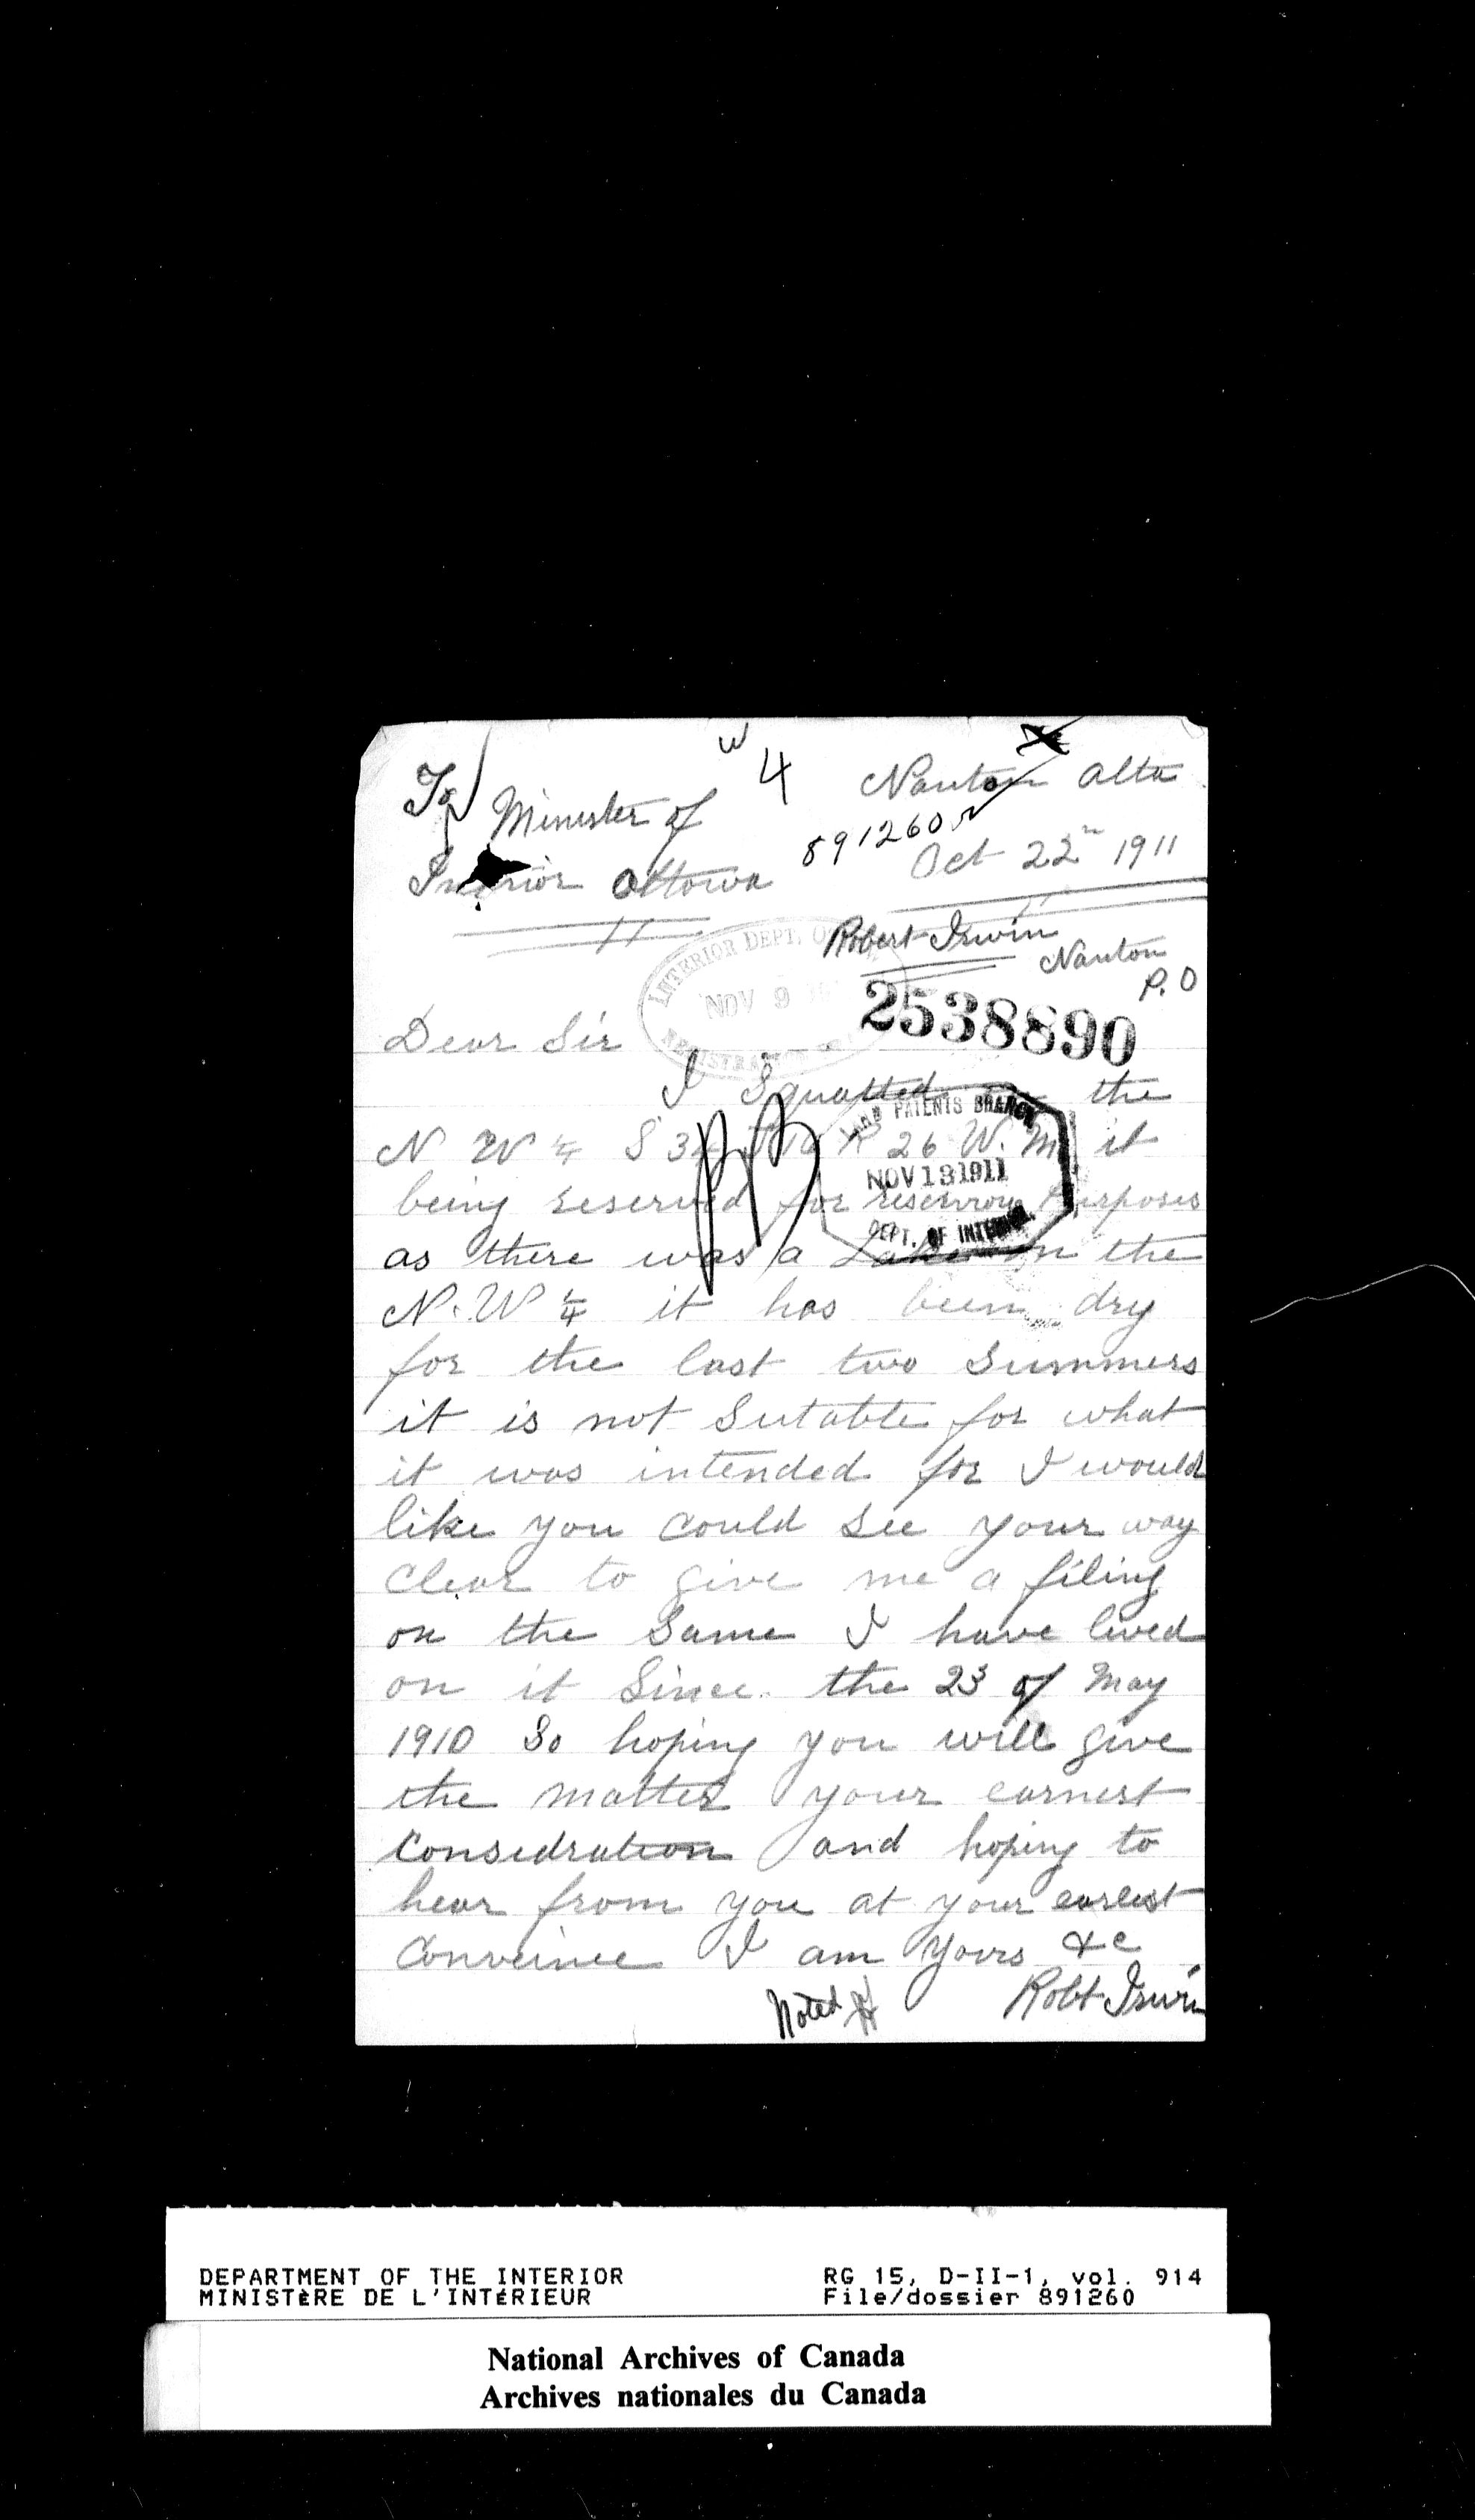 W
4
To Minister of
Interior Ottowa
Nanton Alta
891260
Oct 22 1911
Robert Irwin
Nanton
P.O
INTERIOR DEPT.
NOV 9
2538890
Dear Sir
I Squatted the
LAND PATENTS BRANCH
NOV 13 1911
DEPT. OF INTERIOR
N W ¼ S R 26 W. M it
being reserved for reservoy purposes
as there was a Lake on the
N. W ¼ it has been dry
for the last two Summers
it is not Sutable for what
it was intended for I would
like you could See your way
Clear to give me a filing
on the Same I have lived
on it Since the 23 of May
1910 So hoping you will give
the matter your earnest
Consedration and hoping to
hear from you at your earlest
Conveince I am yours &c
Robt Irwin
Noted
DEPARTMENT OF THE INTERIOR RG 15, D-II-1, vol. 914
MINISTèRE DE L'INTéRIEUR File/dossier 891260
National Archives of Canada
Archives nationales du Canada